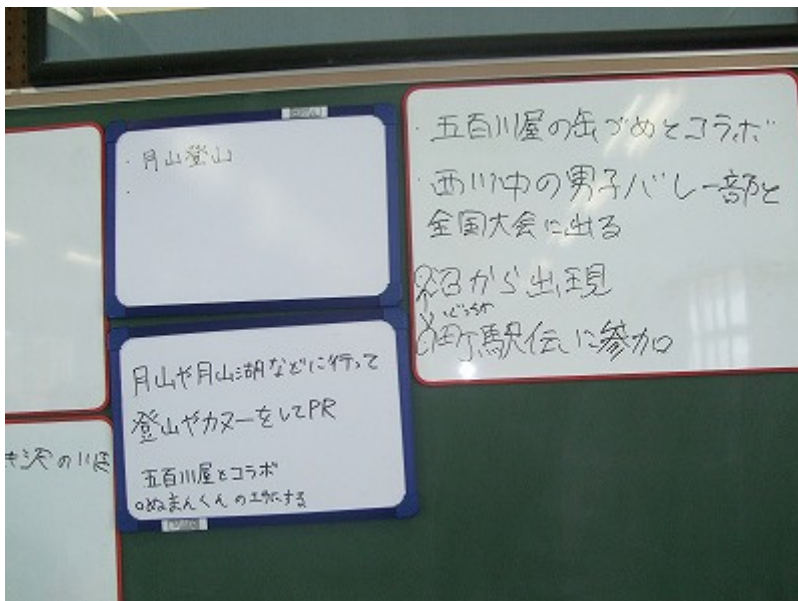 ・月山登山
・
月山や月山湖などに行って
登山やカヌーをしてPR
五百川屋とコラボ
ぬまんくんのエサにする
・五百川屋の缶づめとコラボ
・西川中の男子バレー部と
全国大会に出る
沼から出現
町駅伝に参加
沢の川